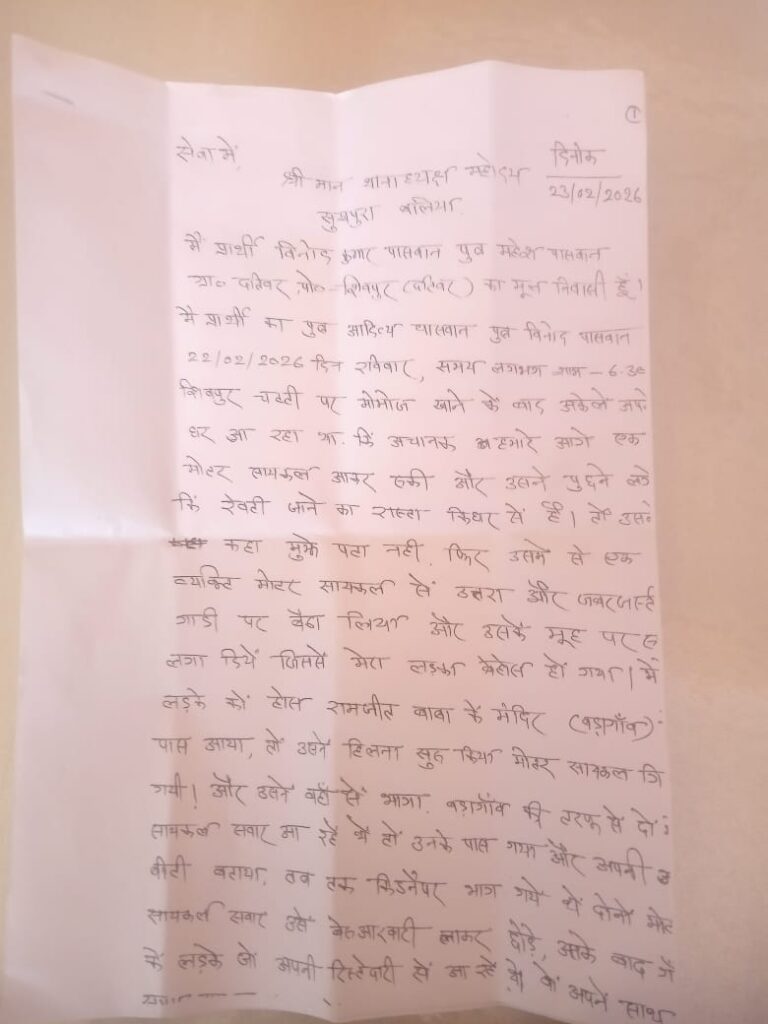 ①
सेवा में,
दिनांक
श्री मान थानाध्यक्ष महोदय
23/02/2026
सुखपुरा बलिया
मैं प्रार्थी विनोद कुमार पासवान पुत्र महेश पासवान
ग्रा० पो०- शिवपुर का मूल निवासी हूँ।
मैं प्रार्थी का पुत्र आदित्य पासवान पुत्र विनोद पासवान
22/02/2026 दिन रविवार, समय लगभग शाम - 6.30
शिवपुर चट्टी पर मोमोज खाने के बाद अकेले अपने
घर आ रहा था. कि अचानक हमारे आगे एक
मोटर सायकल आकर रुकी और उसने पुछने लगे
कि रेवती जाने का रास्ता किधर से है। तो उसने
कहा मुझे पता नहीं. फिर उसमें से एक
व्यक्ति मोटर सायकल से उतरा और जबरजस्ती
गाडी पर बैठा लिया और उसके मूह पर
लगा दिये जिससे मेरा लड़का बेहोस हो गया। मेरे
लड़के को होस रामजीत बाबा के मंदिर (बड़ागाँव)
पास आया, तो उसने हिलना सुरु किया मोटर सायकल गि
गयी। और उसने वहाँ से भागा. बड़ागाँव की तरफ से दो
सायकल सवार आ रहे थे तो उनके पास गया और अपनी
बीती बताया. तब तक किडनैपर भाग गये थे दोनो मोट
सायकल सवार उसे लाकर छोड़े, उसके बाद
के लड़के जो अपनी रिस्तेदारी से आ रहे थे वो अपने साथ